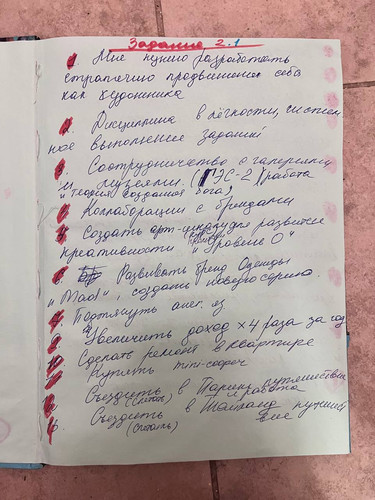 Задание 2.1
1. Мне нужно разработать
стратегию продвижения себя
как художника
2. Дисциплина в лёгкости, систем
ное выполнение заданий
Соотрудничество с галереями
и музеями. (ГЭС-2) (работа
"Теория создания бога")
Коллаборации с брендами
Создать арт- для развития
креативности "Уровень 0"
Развивать бренд Одежды
"Mad", создании новую серию.
Подтянуть англ. яз
Увеличить доход ×4 раза за год
Сделать ремонт в квартире
Купить
Съездить в Париж путешествие
и работа
Съездить в Тайланд